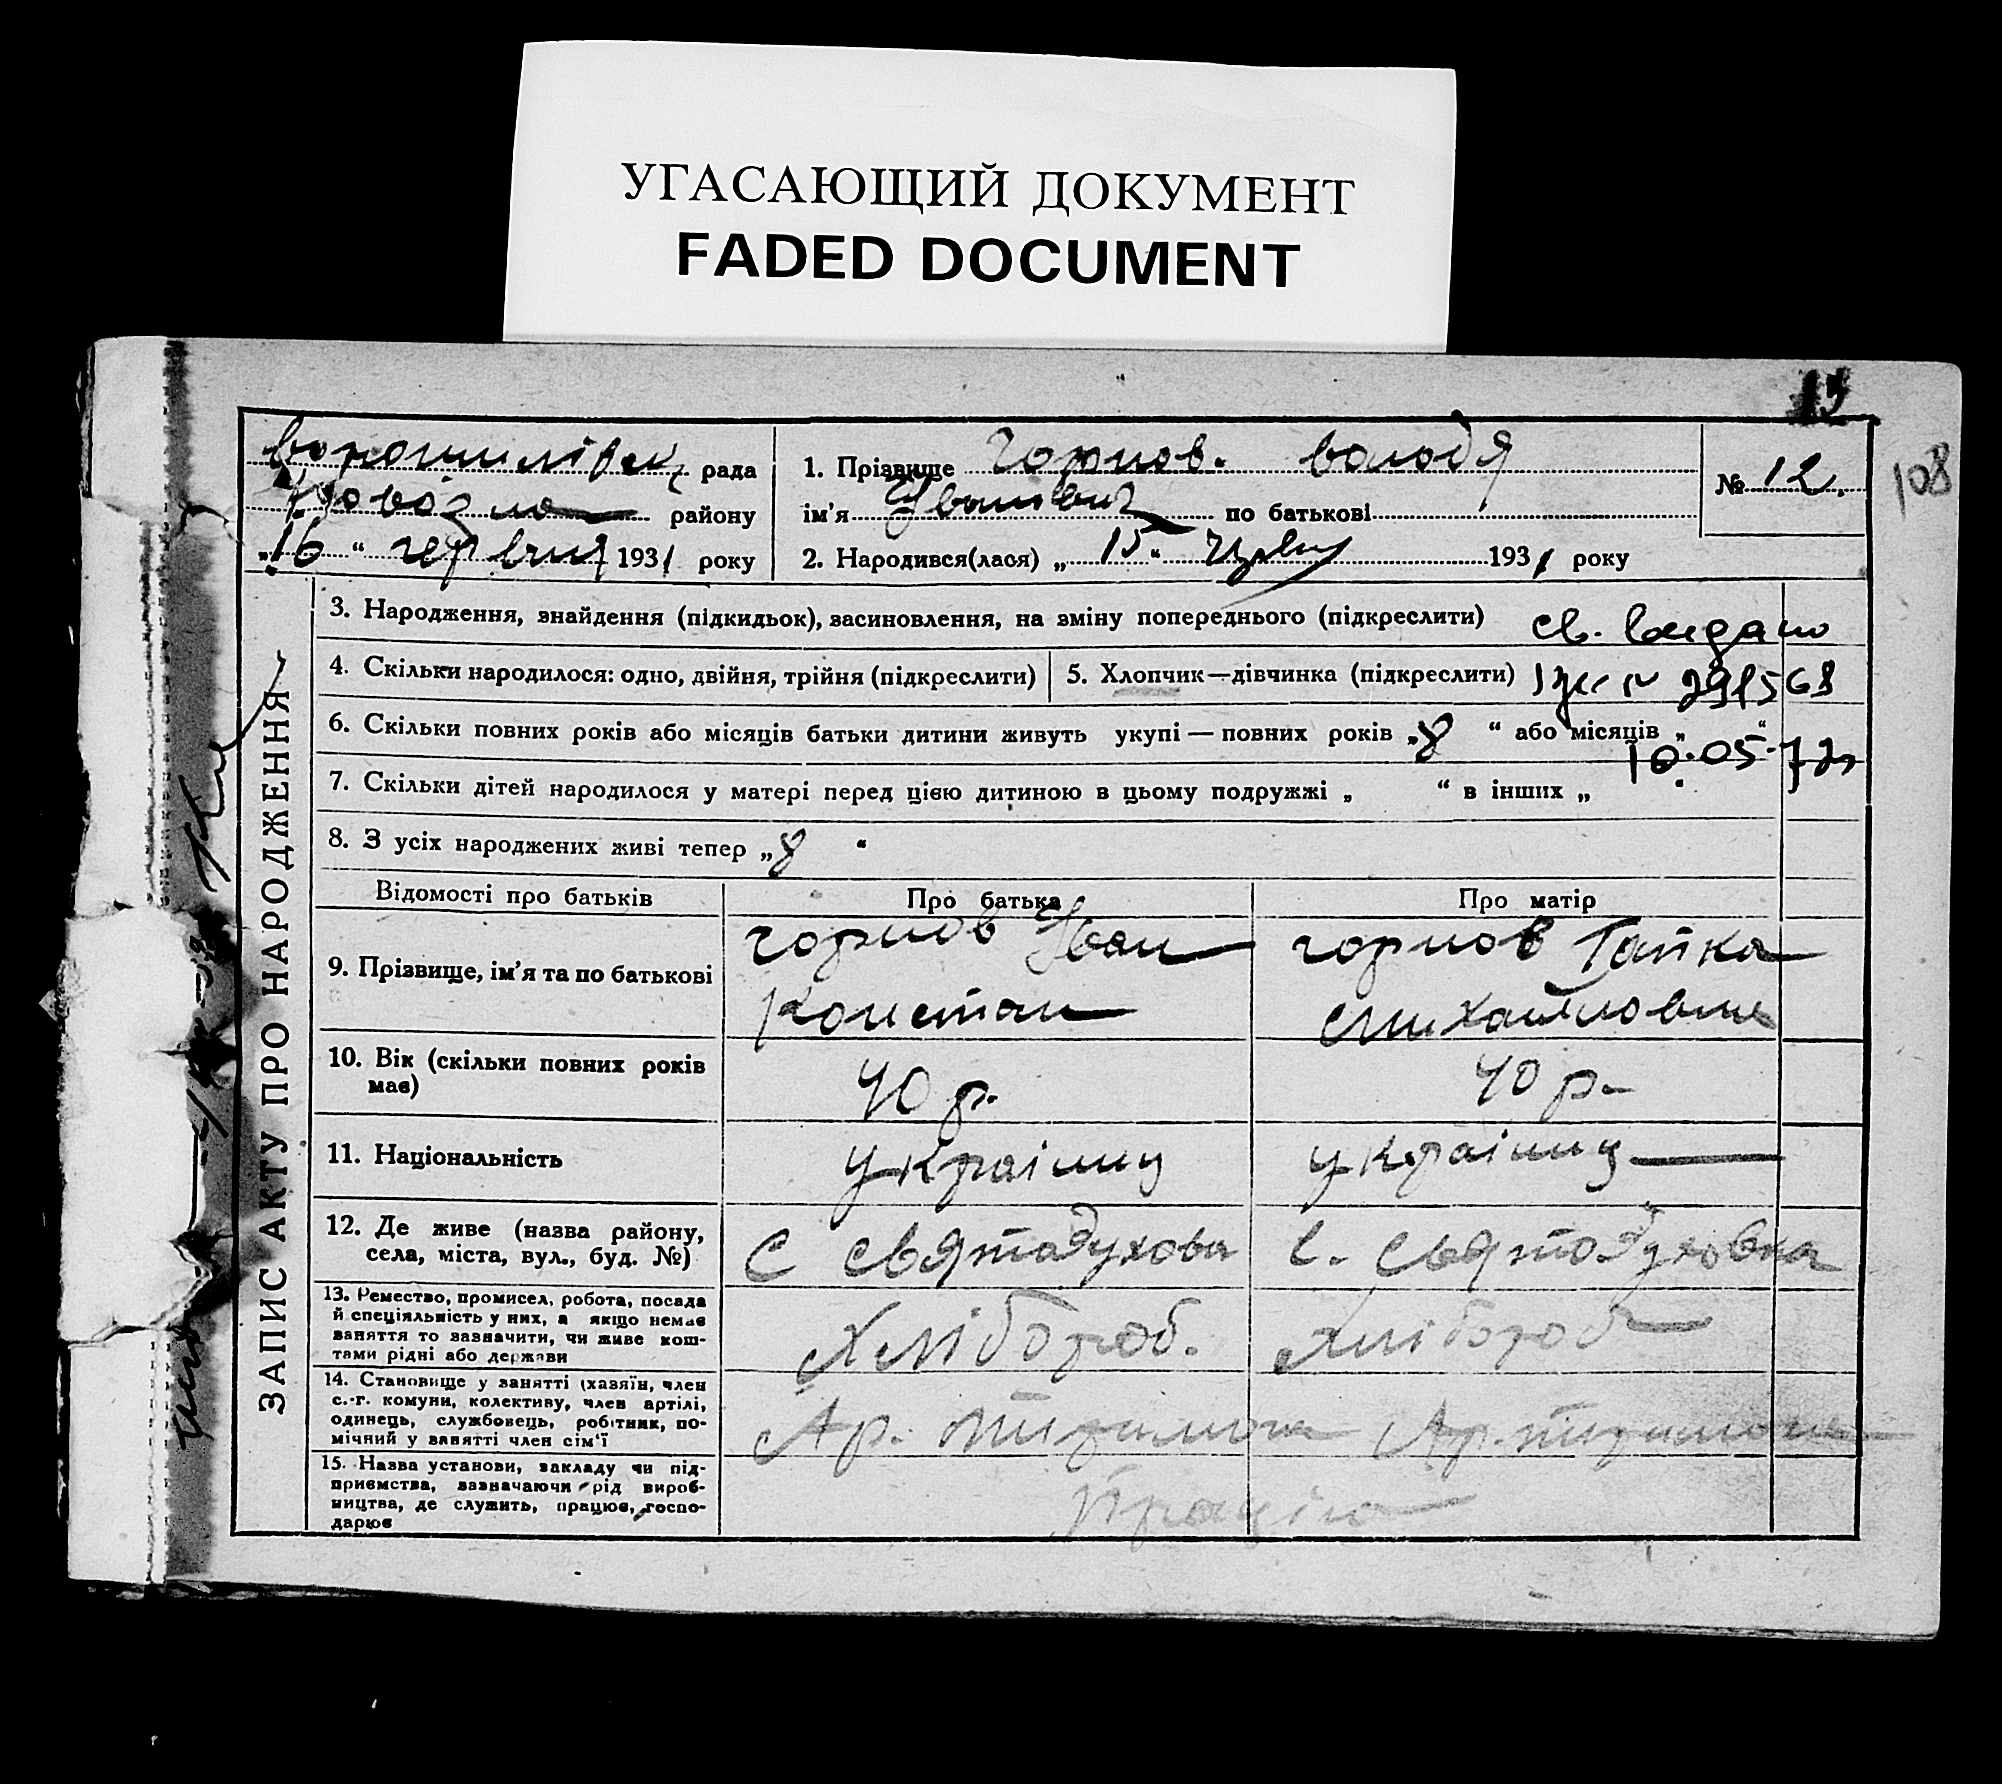 УГАСАЮЩИЙ ДОКУМЕНТ
FADED DOCUMENT
13
108
ворошилівск рада
району
„16“ червня 1931 року
1. Прізвище Горнов. володя
ім'я Іванович по батькові
2. Народився(лася) „15“ червн 1931 року
№ 12.
ЗАПИС АКТУ ПРО НАРОДЖЕННЯ
3. Народження, знайдення (підкидьок), засиновлення, на зміну попереднього (підкреслити)
св. видано
4. Скільки народилося: одно, двійня, трійня (підкреслити)
5. Хлопчик—дівчинка (підкреслити)
№ 291568
6. Скільки повних років або місяців батьки дитини живуть укупі — повних років „8“ або місяців „ “
10.05.72
7. Скільки дітей народилося у матері перед цією дитиною в цьому подружжі „ “ в інших „ “
8. З усіх народжених живі тепер „8“
Відомості про батьків
Про батька
Про матір
9. Прізвище, ім'я та по батькові
горнов Іван
Констан
горнов Гапка
Михайловна
10. Вік (скільки повних років
має)
40 р.
40 р.
11. Національність
українц
українц
12. Де живе (назва району,
села, міста, вул., буд. №)
С Святодухова
с. Святодуховка
13. Ремество, промисел, робота, посада
й спеціяльність у них, а якщо немає
заняття то зазначити, чи живе кош-
тами рідні або держави
Хлібороб.
Хлібороб
14. Становище у занятті (хазяїн, член
с.-г. комуни, колективу, член артілі,
одинець, службовець, робітник, по-
мічний у занятті член сім'ї
Ар.
Ар.
15. Назва установи, закладу чи під-
приємства, зазначаючи рід вироб-
ництва, де служить, працює, госпо-
дарює